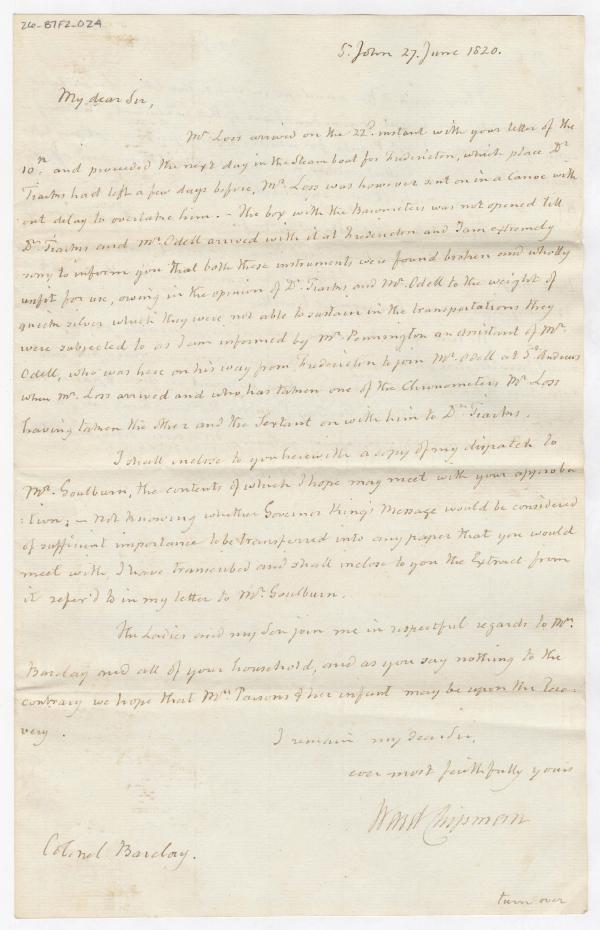 26-B7F2-024
St John 27. June 1820.
My dear Sir,
Mr Loss arrived on the 22d instant with your letter of the
10th. and proceeded the next day in the Steam boat for Fredericton, which place Dr
Tiarks had left a few days before, Mr. Loss was however sent on in a Canoe with
out delay to overtake him. — The box with the Barometers was not opened till
Dr. Tiarks and Mr. Odell arrived with it at Fredericton and I am extremely
sorry to inform you that both these instruments were found broken and wholly
unfit for use, owing in the opinion of Dr. Tiarks and Mr Odell to the weight of
quick silver which they were not able to sustain in the transportations they
were subjected to as I am informed by Mr. Pennington an assistant of Mr.
Odell, who was here on his way from Fredericton to join Mr. Odell at St. Andrews
when Mr. Loss arrived and who has taken one of the Chronometers Mr Loss
having taken the other and the Sextant on with him to Dr. Tiarks.
I shall inclose to you herewith a copy of my dispatch to
Mr. Goulburn, the contents of which I hope may meet with your approba
:tion; — not knowing whether Governor King's Message would be considered
of sufficient importance to be transferred into any paper that you would
meet with, I have transcribed and shall inclose to you the Extract from
it refer'd to in my letter to Mr. Goulburn.
The Ladies and my Son join me in respectful regards to Mrs.
Barclay and all of your household, and as you say nothing to the
contrary we hope that Mrs. Parsons & her infant may be upon the Reco-
very.
I remain my dear Sir,
ever most faithfully yours
Ward Chipman
Colonel Barclay.
turn over